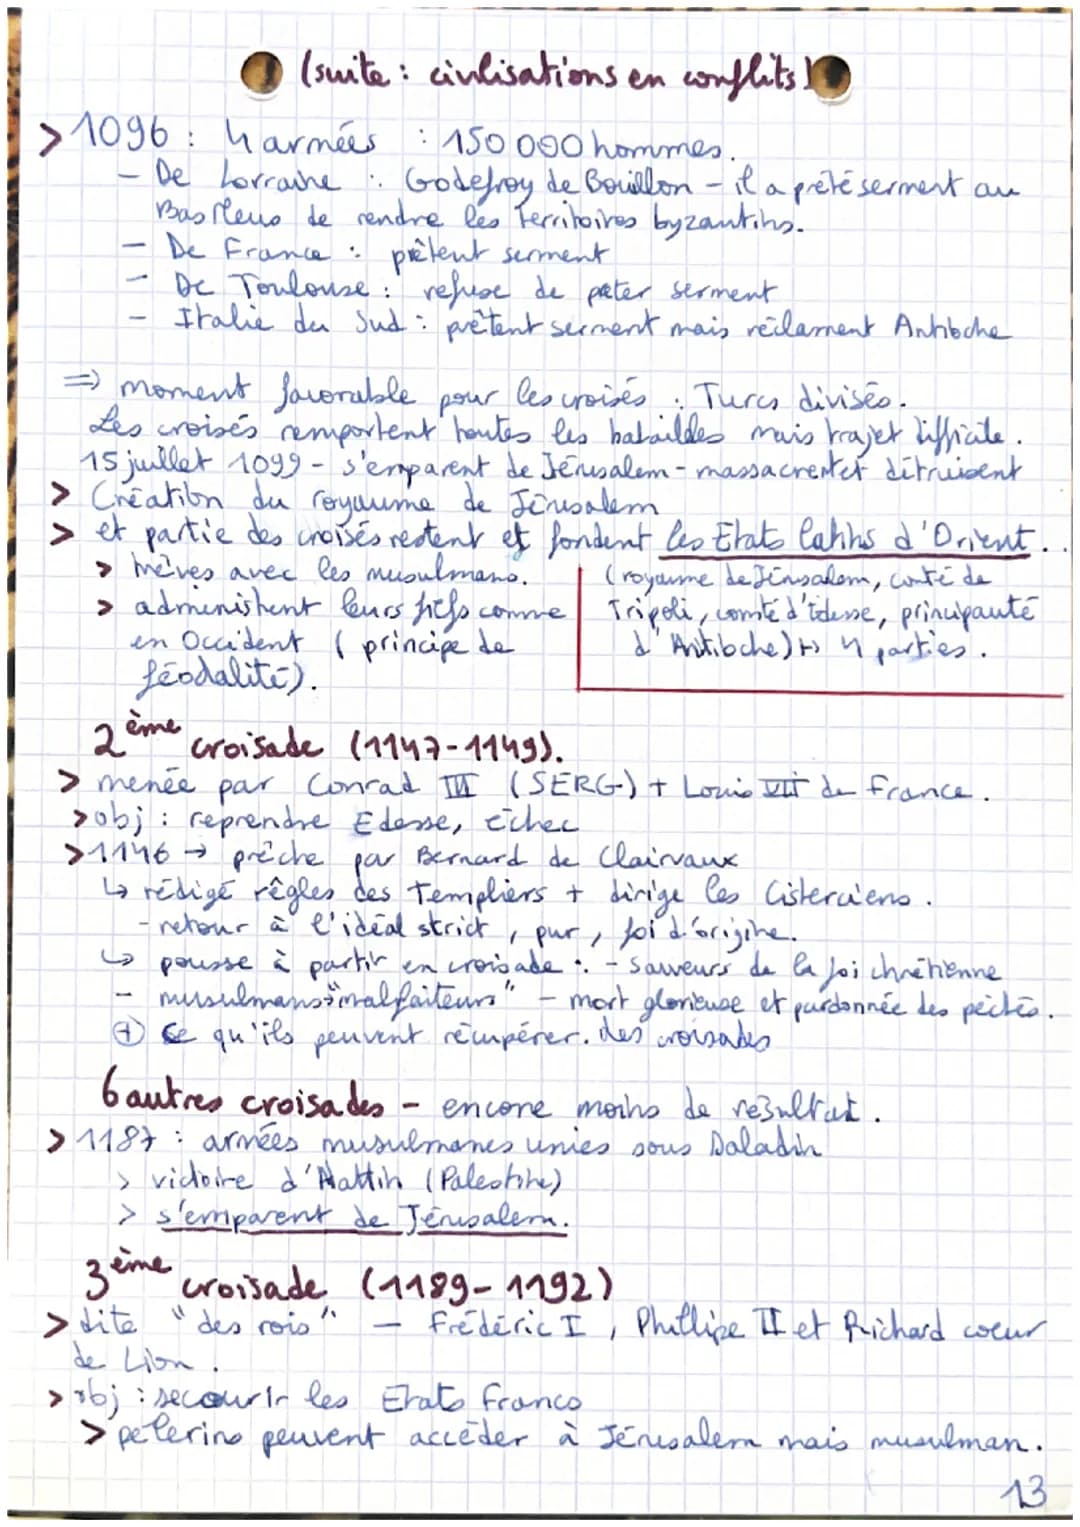 (suite : civilisations en conflits)
> 1096 : 4 armées : 150 000 hommes.
- De Lorraine : Godefroy de Bouillon - il a prêté serment au
Basileus de rendre les territoires byzantins.
- De France : prêtent serment
- De Toulouse : refuse de pêter serment
- Italie du Sud : prêtent serment mais réclament Antioche
=> moment favorable pour les croisés : Turcs divisés.
Les croisés remportent toutes les bataildes mais trajet difficile.
15 juillet 1099 - s'emparent de Jérusalem - massacrent et détruisent
> Création du royaume de Jérusalem
> et partie des croisés restent et fondent les Etats latins d'Orient.
> trèves avec les musulmans.
> administrent leurs fiefs comme
en Occident (principe de
féodalité).
(royaume de Jérusalem, comté de
Tripoli, comté d'Edesse, principauté
d'Antioche) ↦ 4 parties.
2ème croisade (1147-1149).
> menée par Conrad III (SERG) + Louis VII de France.
> obj : reprendre Edesse, échec
> 1146 → prêche par Bernard de Clairvaux
↳ rédigé règles des Templiers + dirige les Cisterciens.
- retour à l'idéal strict, pur, foi d'origine.
↳ pousse à partir en croisade : - sauveurs de la foi chrétienne
- musulmans = "malfaiteurs" - mort glorieuse et pardonnée des péchés.
⊕ ce qu'ils peuvent récupérer. des croisades
6 autres croisades - encore moins de résultat.
> 1187 : armées musulmanes unies sous Saladin
> victoire d'Hattin (Palestine)
> s'emparent de Jérusalem.
3ème croisade (1189-1192)
> dite "des rois" - Frédéric I, Phillipe II et Richard coeur
de Lion.
> obj : secourir les Etats francs
> pélerins peuvent accéder à Jérusalem mais musulman.
13